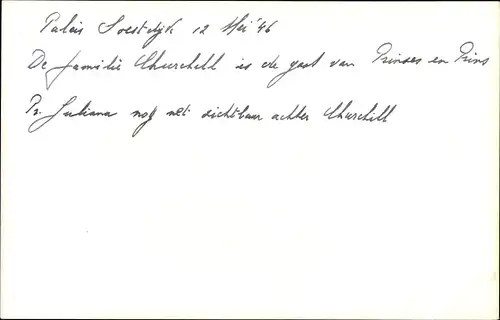 Paleis Soestdijk 12 Mei '46
De familie Churchill is de gast van Prinses en Prins
Pr. Juliana nog net zichtbaar achter Churchill